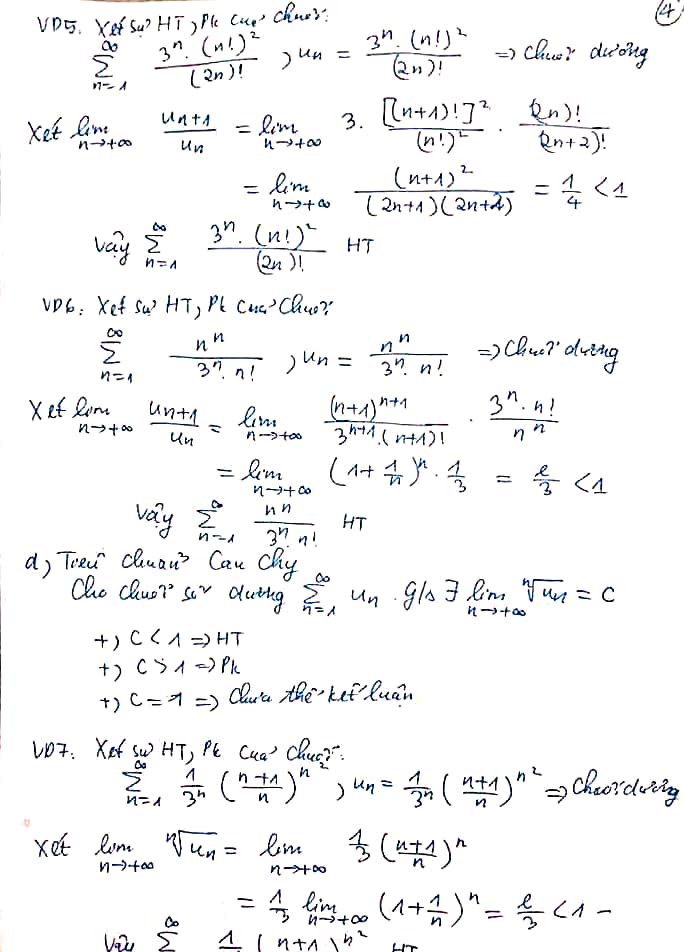 4
VD5. Xét sự HT, PK của chuỗi:
∞ Σ n=1 3ⁿ.(n!)² / (2n)! , uₙ = 3ⁿ.(n!)² / (2n)! => Chuỗi dương
Xét lim n→+∞ uₙ₊₁/uₙ = lim n→+∞ 3. [(n+1)!]² / (n!)² . (2n)! / (2n+2)!
= lim n→+∞ (n+1)² / (2n+1)(2n+2) = 1/4 < 1
Vậy ∞ Σ n=1 3ⁿ.(n!)² / (2n)! HT
VD6: Xét sự HT, PK của chuỗi
∞ Σ n=1 nⁿ / 3ⁿ.n! , uₙ = nⁿ / 3ⁿ.n! => Chuỗi dương
Xét lim n→+∞ uₙ₊₁/uₙ = lim n→+∞ (n+1)ⁿ⁺¹ / 3ⁿ⁺¹.(n+1)! . 3ⁿ.n! / nⁿ
= lim n→+∞ (1+1/n)ⁿ . 1/3 = e/3 < 1
Vậy ∞ Σ n=1 nⁿ / 3ⁿ.n! HT
d, Tiêu chuẩn Cauchy
Cho chuỗi số dương ∞ Σ n=1 uₙ . G/s ∃ lim n→+∞ ⁿ√uₙ = C
+) C < 1 => HT
+) C > 1 => PK
+) C = 1 => Chưa thể kết luận
VD7: Xét sự HT, PK của chuỗi:
∞ Σ n=1 1/3ⁿ (n+1 / n)^n² , uₙ = 1/3ⁿ (n+1 / n)^n² => Chuỗi dương
Xét lim n→+∞ ⁿ√uₙ = lim n→+∞ 1/3 (n+1 / n)ⁿ
= 1/3 lim n→+∞ (1+1/n)ⁿ = e/3 < 1 -
Vậy ∞ Σ 1 (n+1)^n² HT